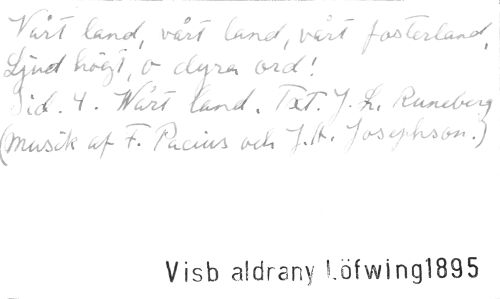 Vårt land, vårt land, vårt fosterland,
Ljud högt, o dyra ord!
Sid. 4. Vårt land. Txt. J. L. Runeberg
(Musik af F. Pacius och J. A. Josephson.)
Visb aldrany Löfwing1895